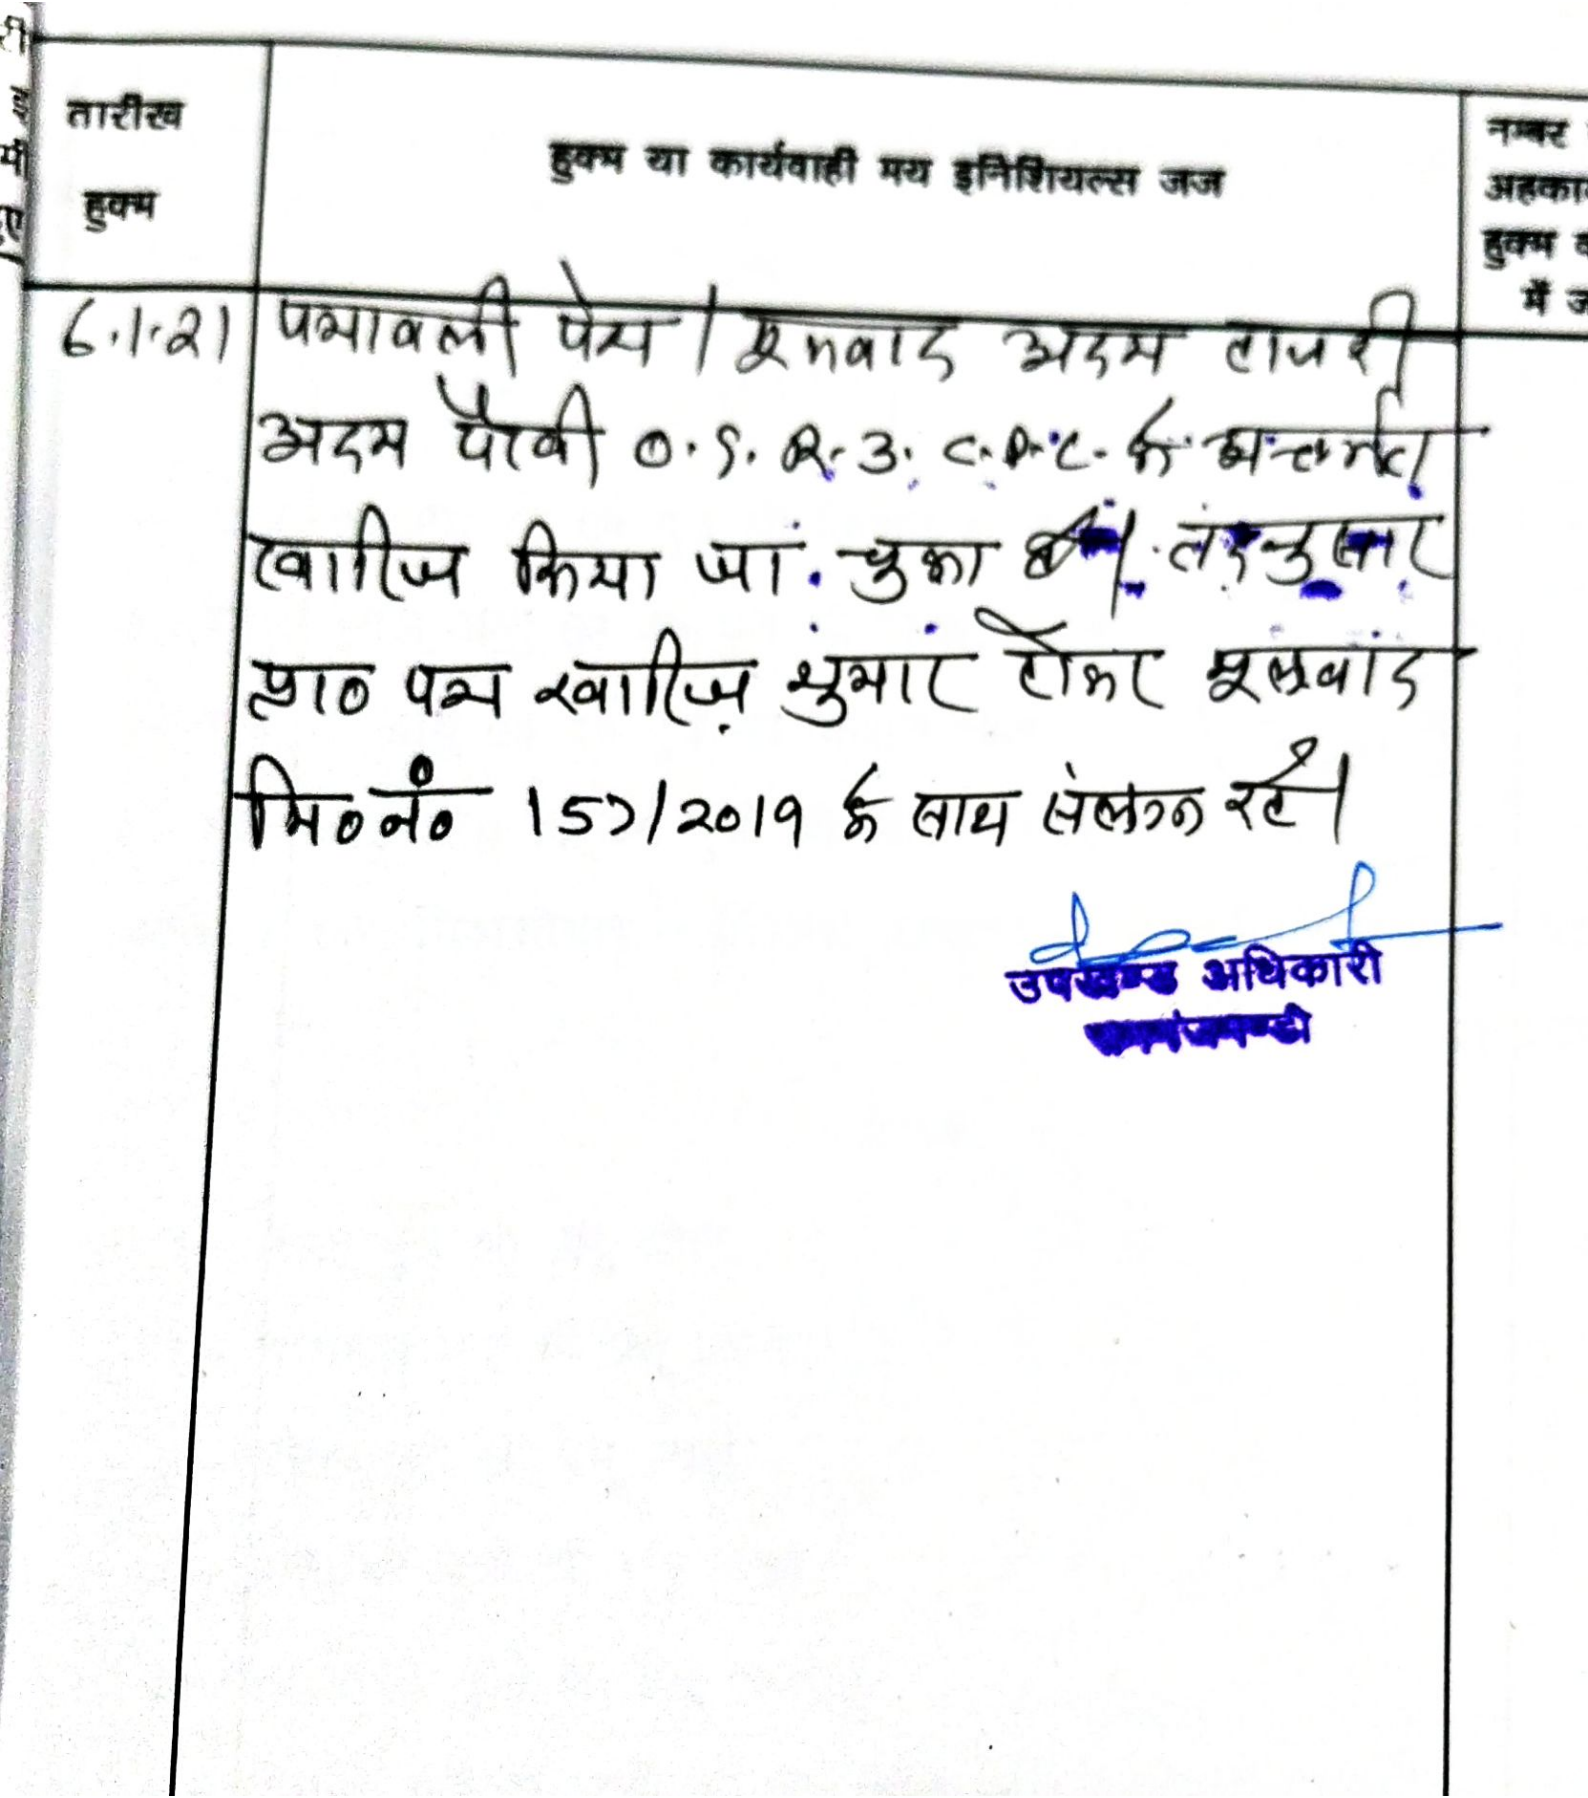 तारीख
हुक्म
हुक्म या कार्यवाही मय इनिशियल्स जज
नम्बर
अहका
हुक्म
में
6.1.21 पत्रावली पेश। मूलवाद अदम हाजरी
अदम पैरवी O.9. R.3. C.P.C. के अन्तर्गत
खारिज किया जा चुका है। तदनुसार
प्रा० पत्र खारिज शुमार होकर मूलवाद
मि०नं० 157/2019 के साथ संलग्न रहे।
उपखण्ड अधिकारी
रामगंजमण्डी